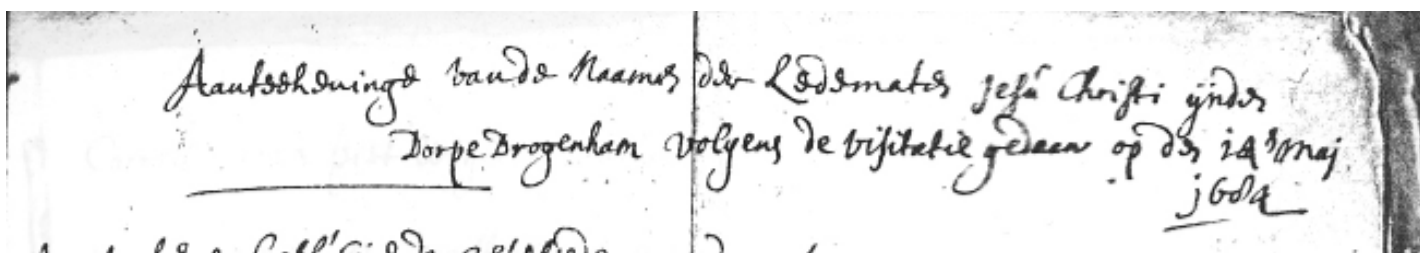 Aanteekeninge vande Naamen der Ledematen Jesu Christi ijnden
Dorpe Drogenham volgens de visitatie gedaan op den 14n Maj
1684